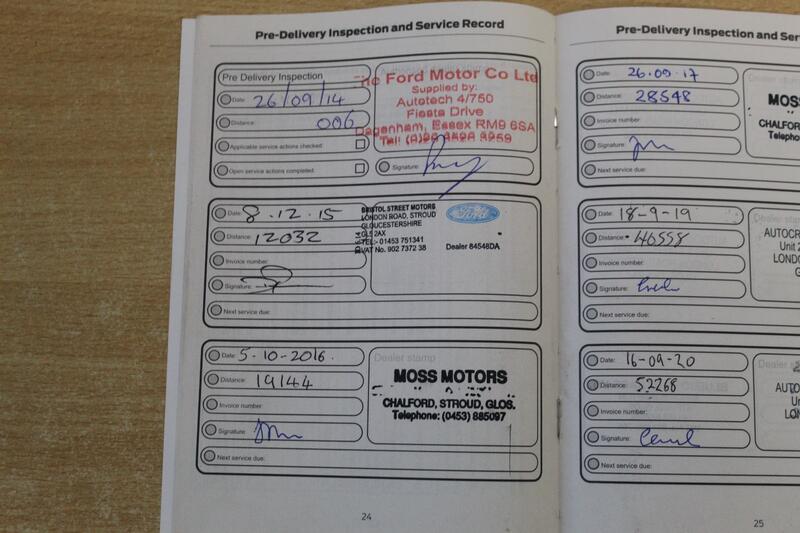 Pre-Delivery Inspection and Service Record
Pre Delivery Inspection
Date: 26/09/14
Distance: 006
Applicable service actions checked:
Open service actions completed:
Ford Motor Co Ltd
Supplied by:
Autotech 4/750
Fiesta Drive
Dagenham, Essex RM9 6SA
Signature:
Date: 8.12.15
Distance: 12032
Invoice number:
Signature:
Next service due:
BRISTOL STREET MOTORS
LONDON ROAD, STROUD
GLOUCESTERSHIRE
GL5 2AX
TEL:- 01453 751341
VAT No. 902 7372 38
Ford
Dealer 84548DA
Date: 5-10-2016.
Distance: 19144
Invoice number:
Signature:
Next service due:
Dealer stamp
MOSS MOTORS
CHALFORD, STROUD, GLOS.
Telephone: (0453) 885097
24
Pre-Delivery Inspection and Ser
Date: 26.09.17
Distance: 28548
Invoice number:
Signature:
Next service due:
Dealer stamp
MOSS
CHALFO
Telepho
Date: 18-9-19
Distance: 40558
Invoice number:
Signature:
Next service due:
Dealer stamp
AUTOCR
Unit 2
LONDO
G
Date: 16-09-20
Distance: 52268
Invoice number:
Signature:
Next service due:
Dealer
AUTO
Un
LON
25